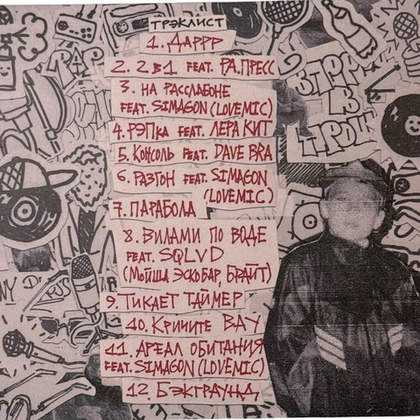 ТРЭКЛИСТ
1. ДАРРР
2. 2 В 1 FEAT. РА.ПРЕСС
3. НА РАССЛАБОНЕ
FEAT. SIMAGON (LOVEMIC)
4. РЭПКА FEAT. ЛЕРА КИТ
5. КОНСОЛЬ FEAT. DAVE BRA
6. РАЗГОН FEAT. SIMAGON
(LOVEMIC)
7. ПАРАБОЛА
8. ВИЛАМИ ПО ВОДЕ
FEAT. SQLVD
(МОЙША ЭСКОБАР, БРАЙТ)
9. ТИКАЕТ ТАЙМЕР
10. КРИЧИТЕ ВАУ
11. АРЕАЛ ОБИТАНИЯ
FEAT. SIMAGON (LOVEMIC)
12. БЭКГРАУНД